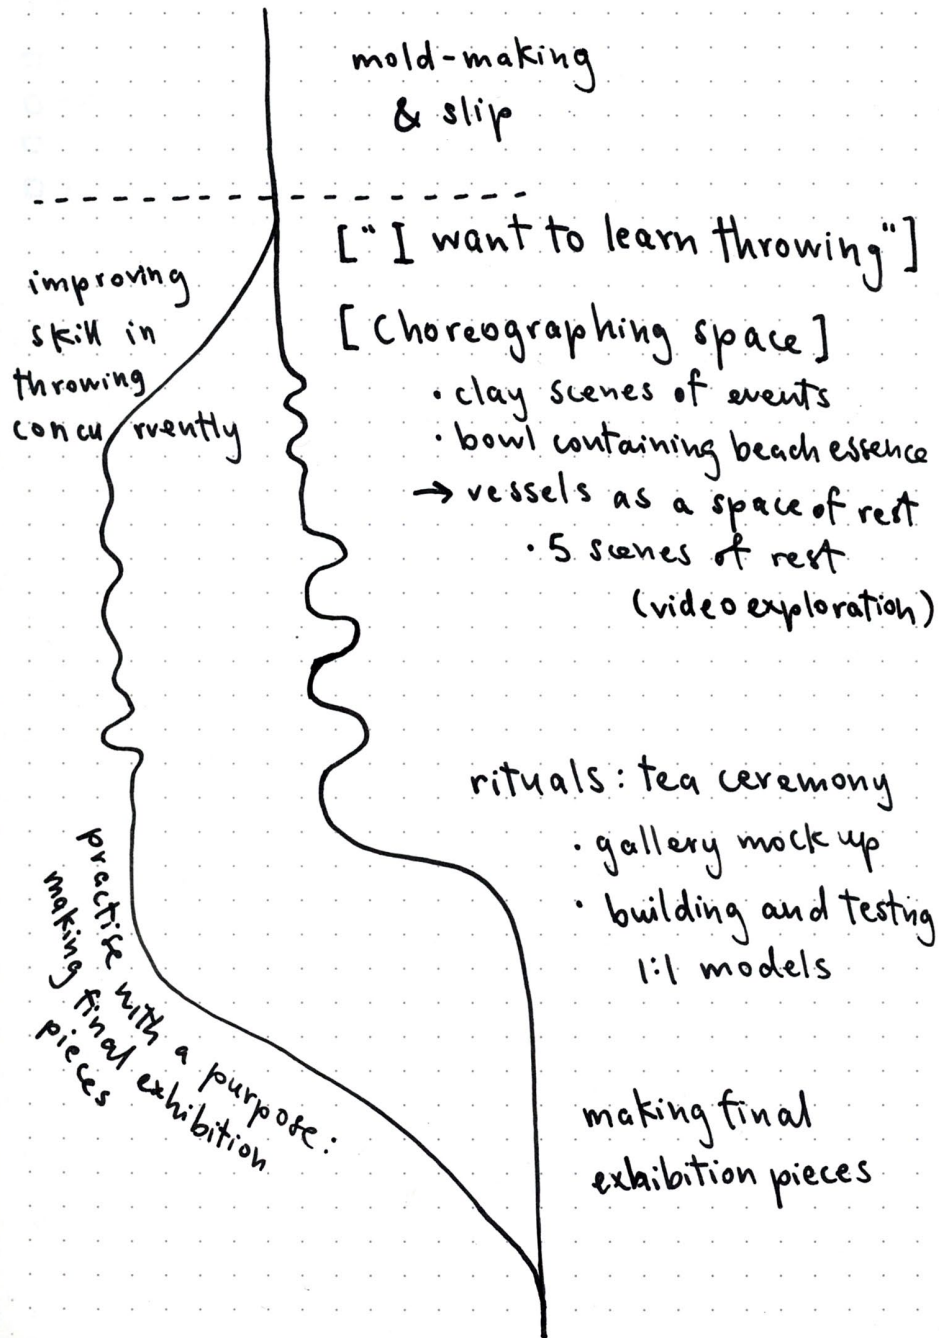 mold-making
& slip
["I want to learn throwing"]
improving
skill in
throwing
concurrently
[Choreographing space]
• clay scenes of events
• bowl containing beach essence
→ vessels as a space of rest
• 5 scenes of rest
(video exploration)
rituals: tea ceremony
• gallery mock up
• building and testing
1:1 models
practise with a purpose:
making final exhibition
pieces
making final
exhibition pieces